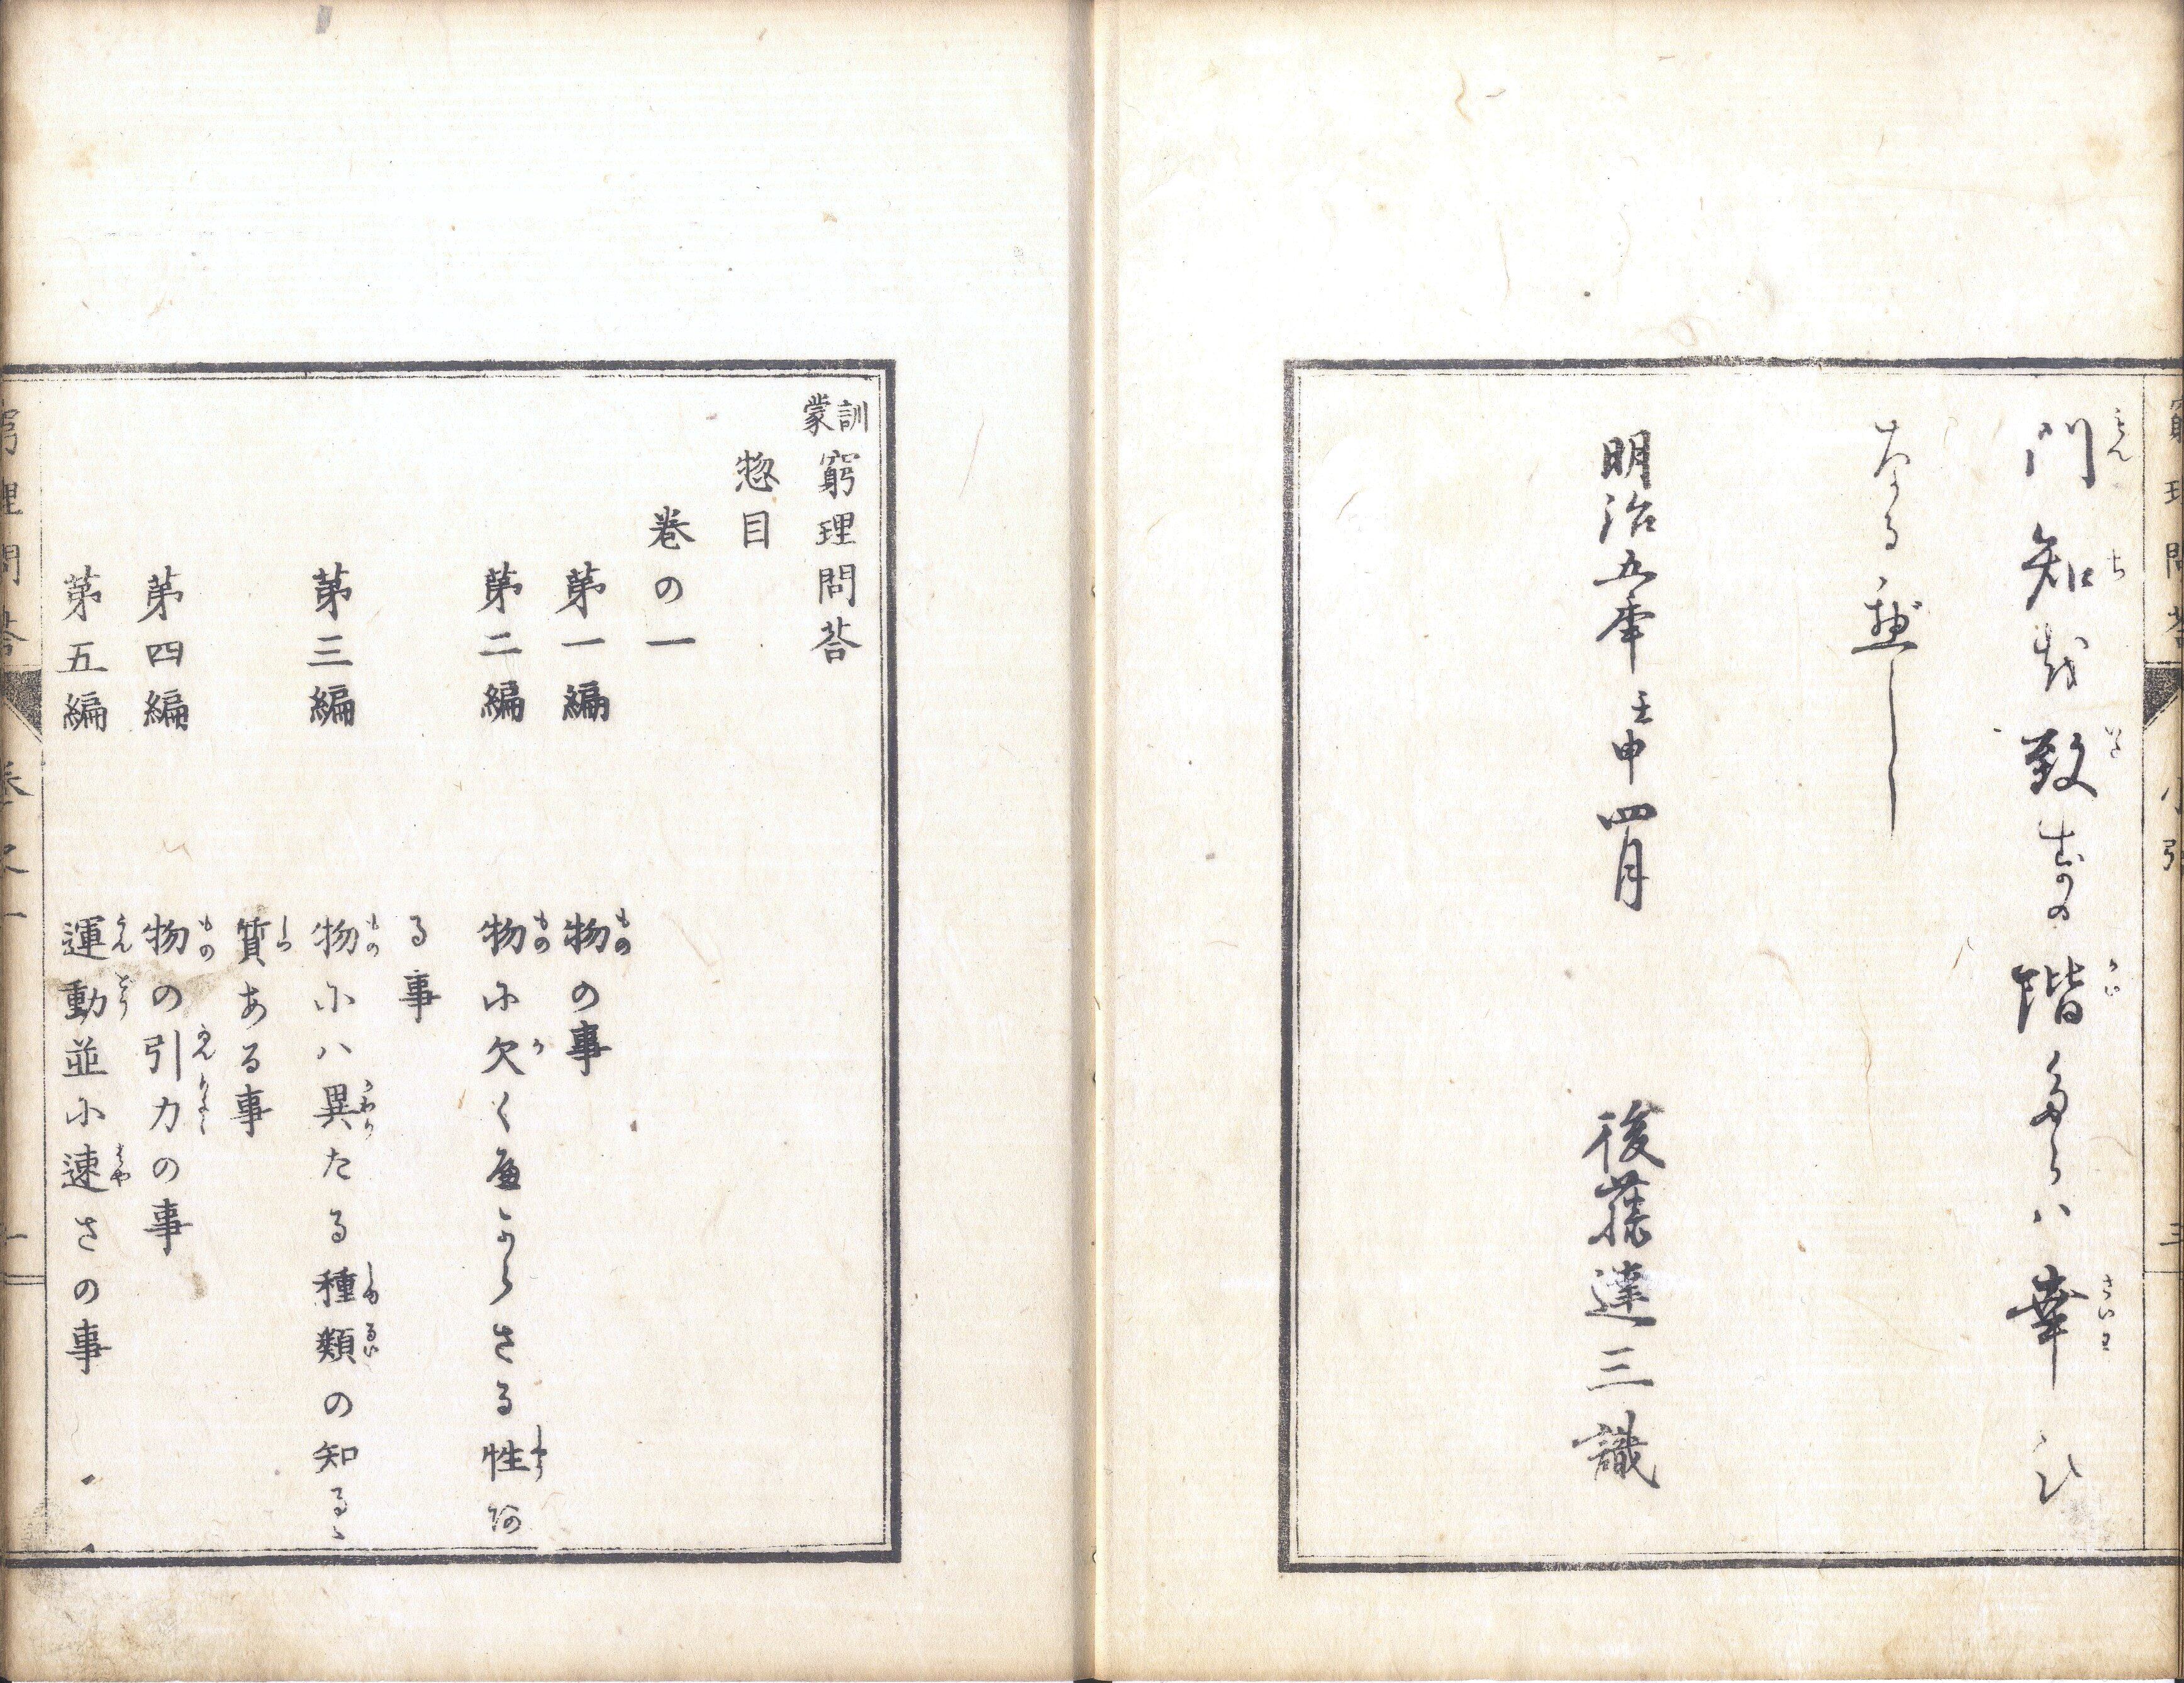 門知を致すの階たらハ幸ひ
なるべし
明治五年壬申四月　後藤達三識
訓蒙窮理問荅
惣目
巻の一
第一編　物の事
第二編　物に欠くべからさる性あ
る事
第三編　物にハ異たる種類の知るゝ
質ある事
第四編　物の引力の事
第五編　運動並に速さの事